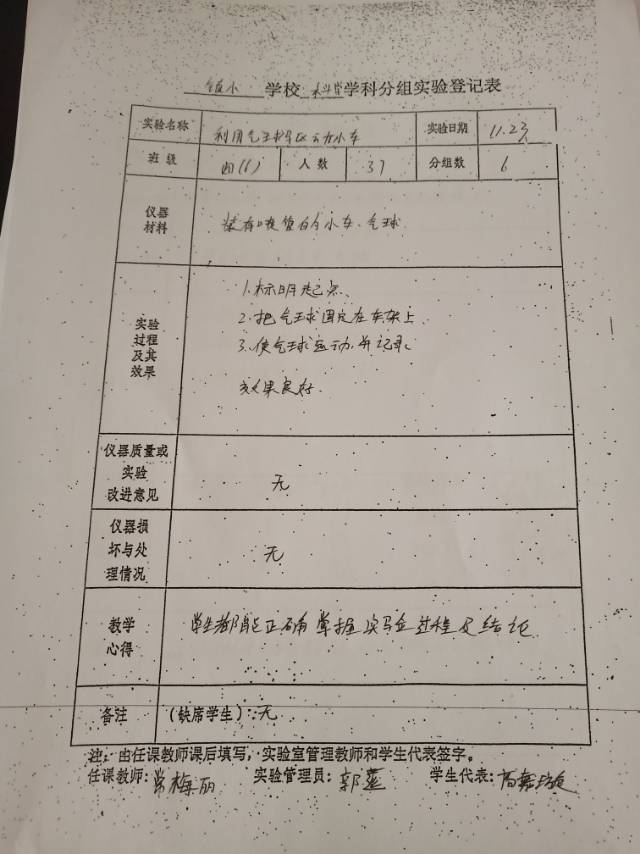 镇小 学校 科学 学科分组实验登记表
实验名称 利用气球驱动小车 实验日期 11.23
班 级 四(6) 人 数 37 分组数 6
仪器
材料 装有吸管的小车、气球
实验
过程
及其
效果
1.标明起点、
2.把气球固定在车架上
3.使气球运动,并记录。
效果良好.
仪器质量或
实验
改进意见 无
仪器损
坏与处
理情况 无
教学
心得 学生都能正确掌握实验过程及结论
备注 (缺席学生):无
注:由任课教师课后填写,实验室管理教师和学生代表签字。
任课教师:常梅丽 实验管理员:郭蓝 学生代表: